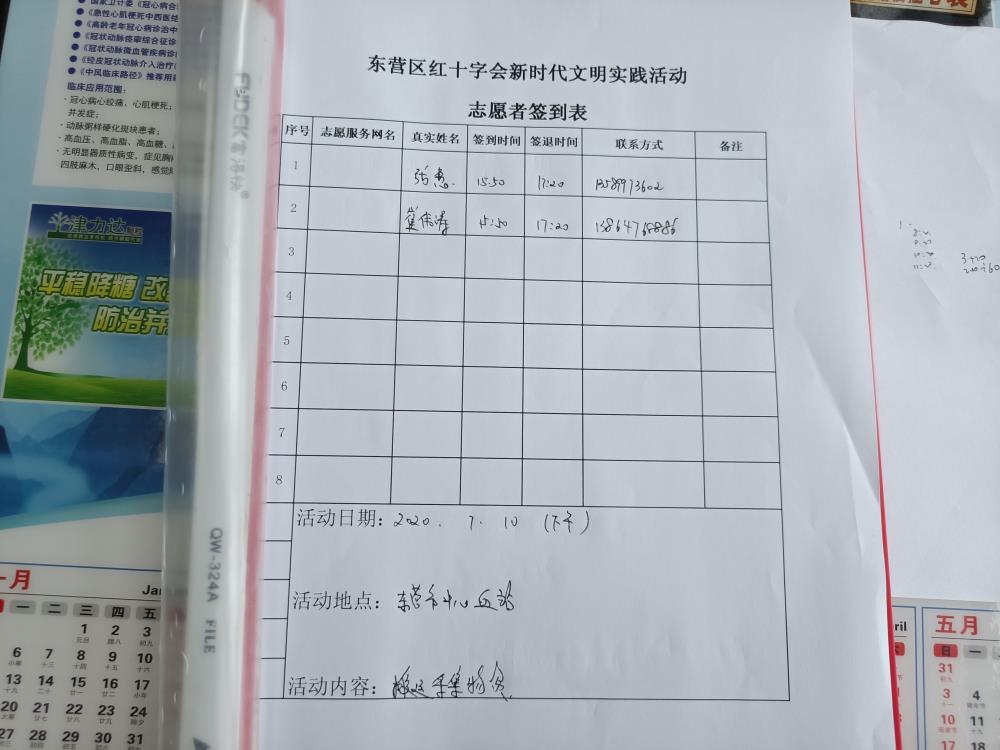 东营区红十字会新时代文明实践活动
志愿者签到表
序号 志愿服务网名 真实姓名 签到时间 签退时间 联系方式 备注
1 15:50 17:20 13589973602
2 崔伟涛 15:50 17:20 13864768886
3
4
5
6
7
8
活动日期: 2020. 7. 10 (下午)
活动地点: 东营市中心血站
活动内容: 搬运采集物资
国家卫计委《冠心病合
《急性心肌梗死中西医结
《高龄老年冠心病诊治中
《冠状动脉痉挛综合征诊
《冠状动脉微血管疾病诊
《经皮冠状动脉介入治疗
《中风临床路径》推荐用药
临床应用范围:
·冠心病心绞痛、心肌梗死;
并发症;
·动脉粥样硬化斑块患者;
·高血压、高血脂、高血糖、
·无明显器质性病变，症见胸
四肢麻木，口眼歪斜，感觉
津力达颗粒
平稳降糖 改
防治并
富得快®
QW-324A FILE
一月 Jan
一 二 三 四 五
1 2 3
6 7 8 9 10
13 14 15 16 17
20 21 22 23 24
27 28 29 30 31
ril
五月
日 一
31
3 4
10 11
17 18